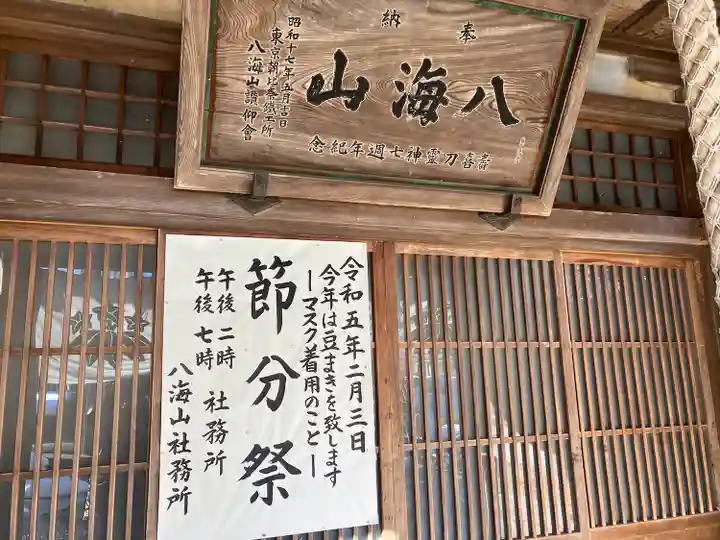 奉納
八海山
壽喜刀靈神七週年紀念
昭和十七年五月吉日
東京朝比奈鐵工所
八海山讃仰會
令和五年二月三日
今年は豆まきを致します
―マスク着用のこと―
節分祭
午後二時 社務所
午後七時
八海山社務所